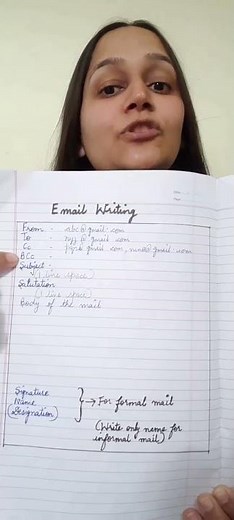 Email Writing
From - abc@gmail.com
To - xyz@gmail.com
Cc - pqr@gmail.com,
BCc -
Subject -
(1 line space)
Salutation
(1 line space)
Body of the mail
Signature
Name
(Designation)
→ For formal mail
(Write only name for
informal mail)